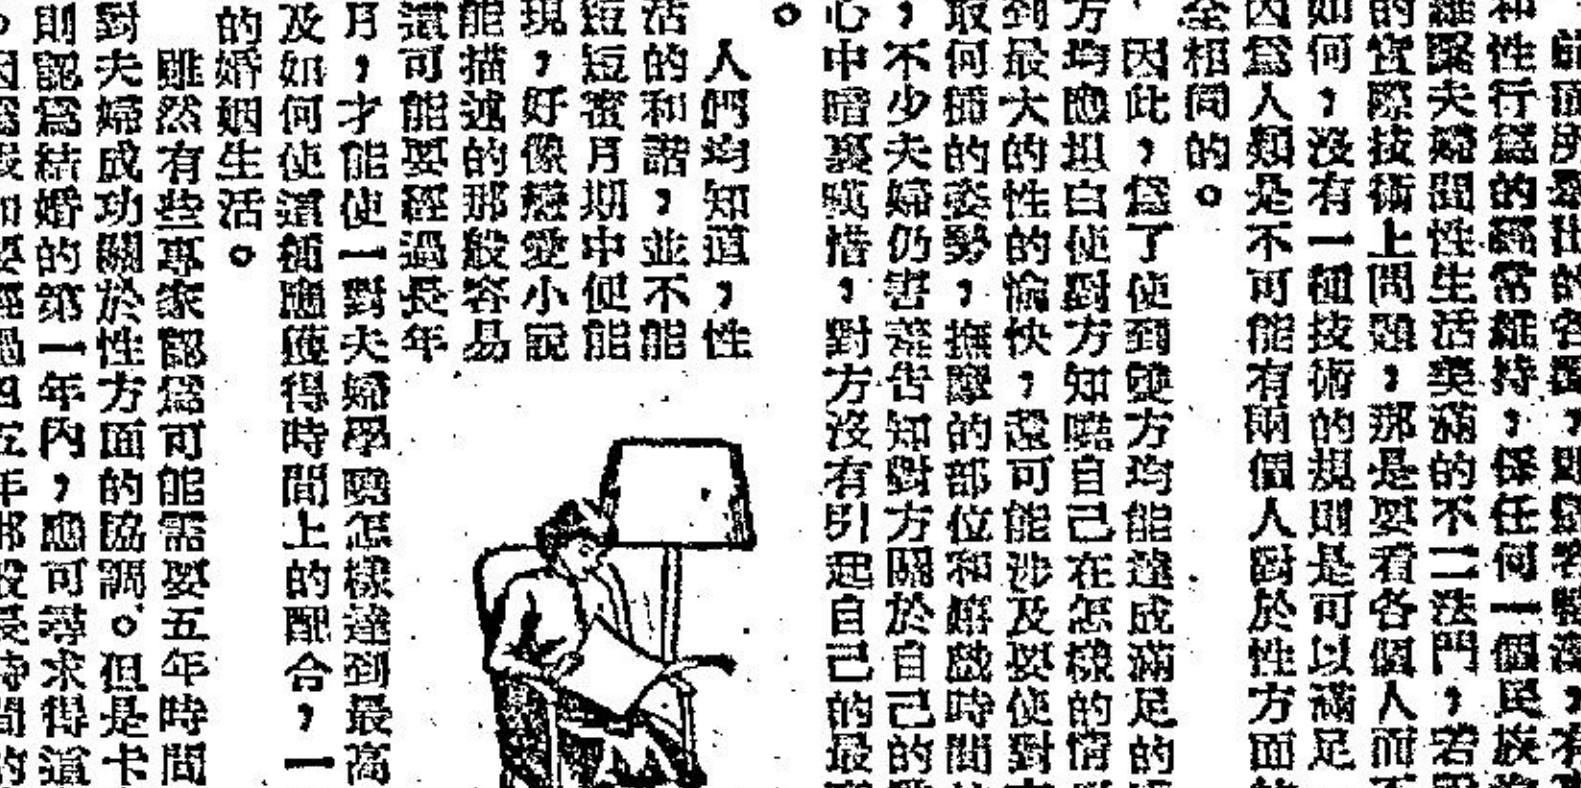 前面所
和性行爲的經常維持，係任何一個民族
維緊夫婦間性生活美滿的不二法門，若
的實際技術上問題，那是要看各個人而
如何，沒有一種技術的規則是可以滿足
因爲人類是不可能有兩個人對於性方面
全相同的。
因此，爲了使到雙方均能達成滿足的
方均應坦白使對方知曉自己在怎樣的情
到最大的性的愉快，還可能涉及要使對
取何種的姿勢，撫摩的部位和嬉戲時間
，不少夫婦仍害羞告知對方關於自己的
心中暗裏嘆惜，對方沒有引起自己的最
。
人們均知道，性
活的和諧，並不能
短短蜜月期中便能
現，好像戀愛小說
能描述的那般容易
這可能要經過長年
月，才能使一對夫婦學曉怎樣達到最高
及如何使這種應獲得時間上的配合，一
的婚姻生活。
雖然有些專家認爲可能需要五年時間
對夫婦成功關於性方面的協調。但是卡
則認爲結婚的第一年內，應可尋求得這
。因爲設如要經過四五年那般長時間的